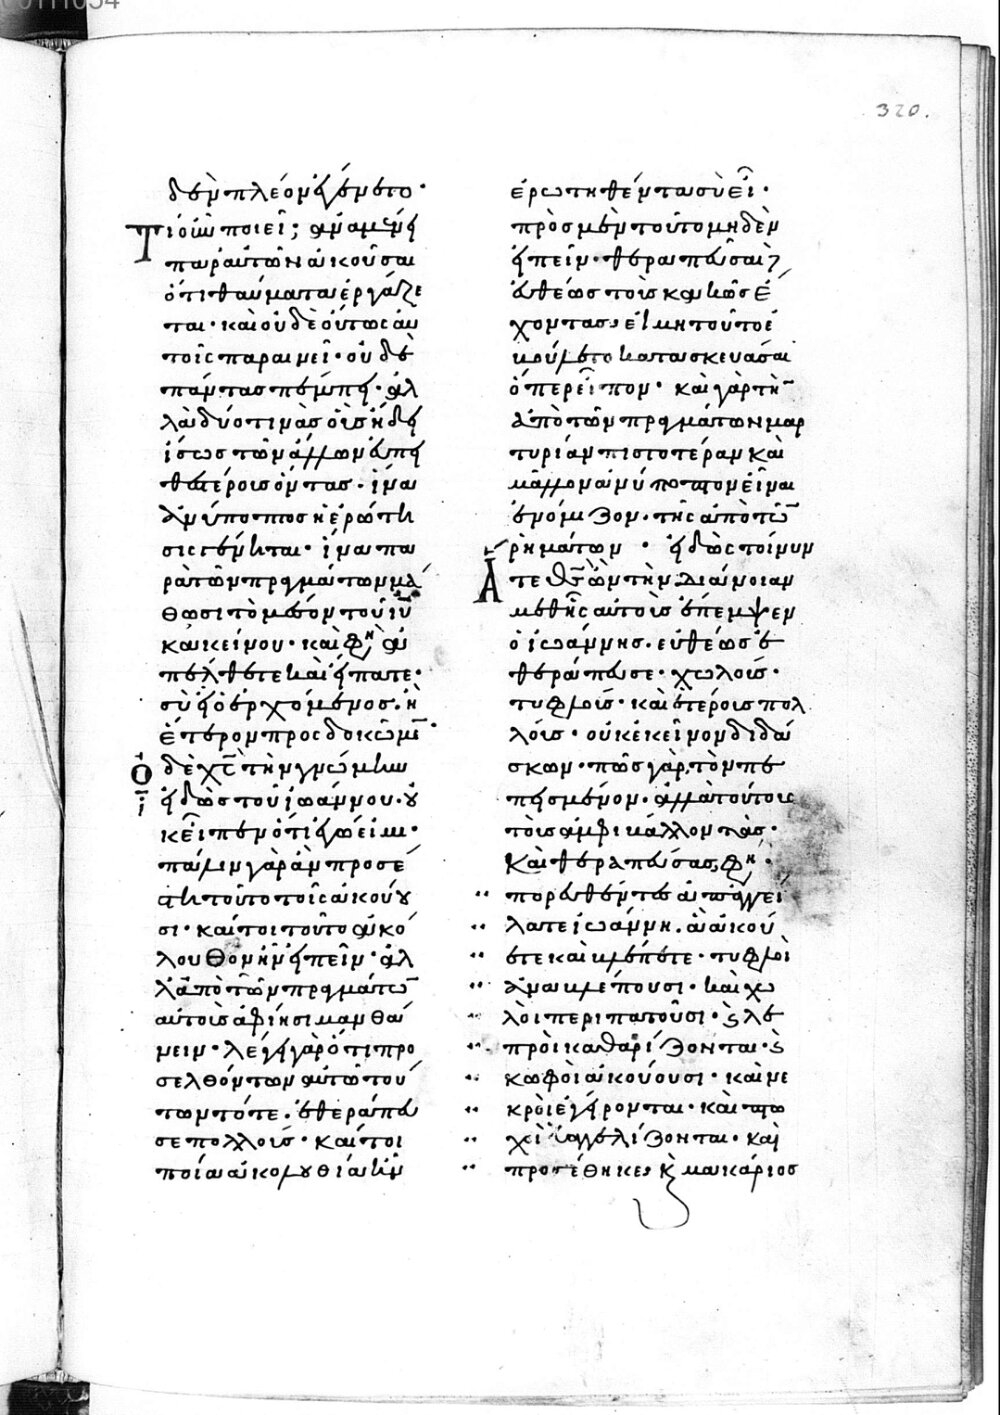 320.
δὲν πλέον ἐγένετο·
Τί οὖν ποιεῖ; ἀναμένει
παρ' αὐτῶν ἀκοῦσαι
ὅτι θαύματα ἐργάζε
ται· καὶ οὐδὲ οὕτως αὐ
τοῖς παραινεῖ· οὐδὲ
πάντας πέμπει· ἀλ
λὰ δύο τινὰς οὓς ἤδει
ἴσως τῶν ἄλλων εὐπει
θεστέρους ὄντας· ἵνα
ἀνύποπτος ἡ ἐρώτη
σις γένηται· ἵνα πα
ρὰ τῶν πραγμάτων μά
θωσι τὸ μέσον τοῦ ιυ
κἀκείνου· καὶ φη ἀ
πέλθετε καὶ εἴπατε·
σὺ εἶ ὁ ἐρχόμενος· ἢ
ἕτερον προσδοκῶμεν·
Ὁ δὲ χς τὴν γνώμην
εἰδὼς τοῦ ἰωάννου· οὐ
κ εἶπεν ὅτι ἐγώ εἰμι·
πάλιν γὰρ ἂν προσέ
στη τοῦτο τοῖς ἀκούου
σι· καίτοι τοῦτο ἀκό
λουθον ἦν εἰπεῖν· ἀλ
λ' ἀπὸ τῶν πραγμάτω
αὐτοὺς ἀφίησι μανθά
νειν· λέγει γὰρ ὅτι προ
σελθόντων αὐτῶ τού
των τότε· ἐθεράπευ
σε πολλούς· καίτοι
ποία ἀκολουθία ἦν
ἐρωτηθέντα σὺ εἶ·
πρὸς μὲν τοῦτο μηδὲν
εἰπεῖν· θεραπεῦσαι
εὐθέως τοὺς κακῶς ἔ
χοντας· εἰ μὴ τοῦτο ἐ
βούλετο κατασκευάσαι
ὅπερ εἶπον· καὶ γὰρ τὴ
ἀπὸ τῶν πραγμάτων μαρ
τυρίαν πιστοτέραν καὶ
μᾶλλον ἀνύποπτον εἶναι
ἐνόμιζον· τῆς ἀπὸ τῶ
ρημάτων· εἰδὼς τοίνυν
Ἅτε θς ὢν τὴν διάνοιαν
μεθ' ἧς αὐτοὺς ἔπεμψεν
ὁ ἰωάννης· εὐθέως ἐ
θεράπευσε· χωλούς·
τυφλούς· καὶ ἑτέρους πολ
λούς· οὐκ ἐκεῖνον διδά
σκων· πῶς γὰρ τὸν πε
πεισμένον· ἀλλὰ τούτους
τοὺς ἀμφιβάλλοντας·
Καὶ θεραπεύσας φη·
πορευθέντες ἀπαγγεί
λατε ἰωάννη· ἃ ἀκού
ετε καὶ βλέπετε· τυφλοὶ
ἀναβλέπουσι· καὶ χω
λοὶ περιπατοῦσι· ϗ λε
προὶ καθαρίζονται· ϗ
κωφοὶ ἀκούουσι· καὶ νε
κροὶ ἐγείρονται· καὶ πτω
χοὶ εὐαγγελίζονται· καὶ
προσέθηκε, ϗ μακάριος